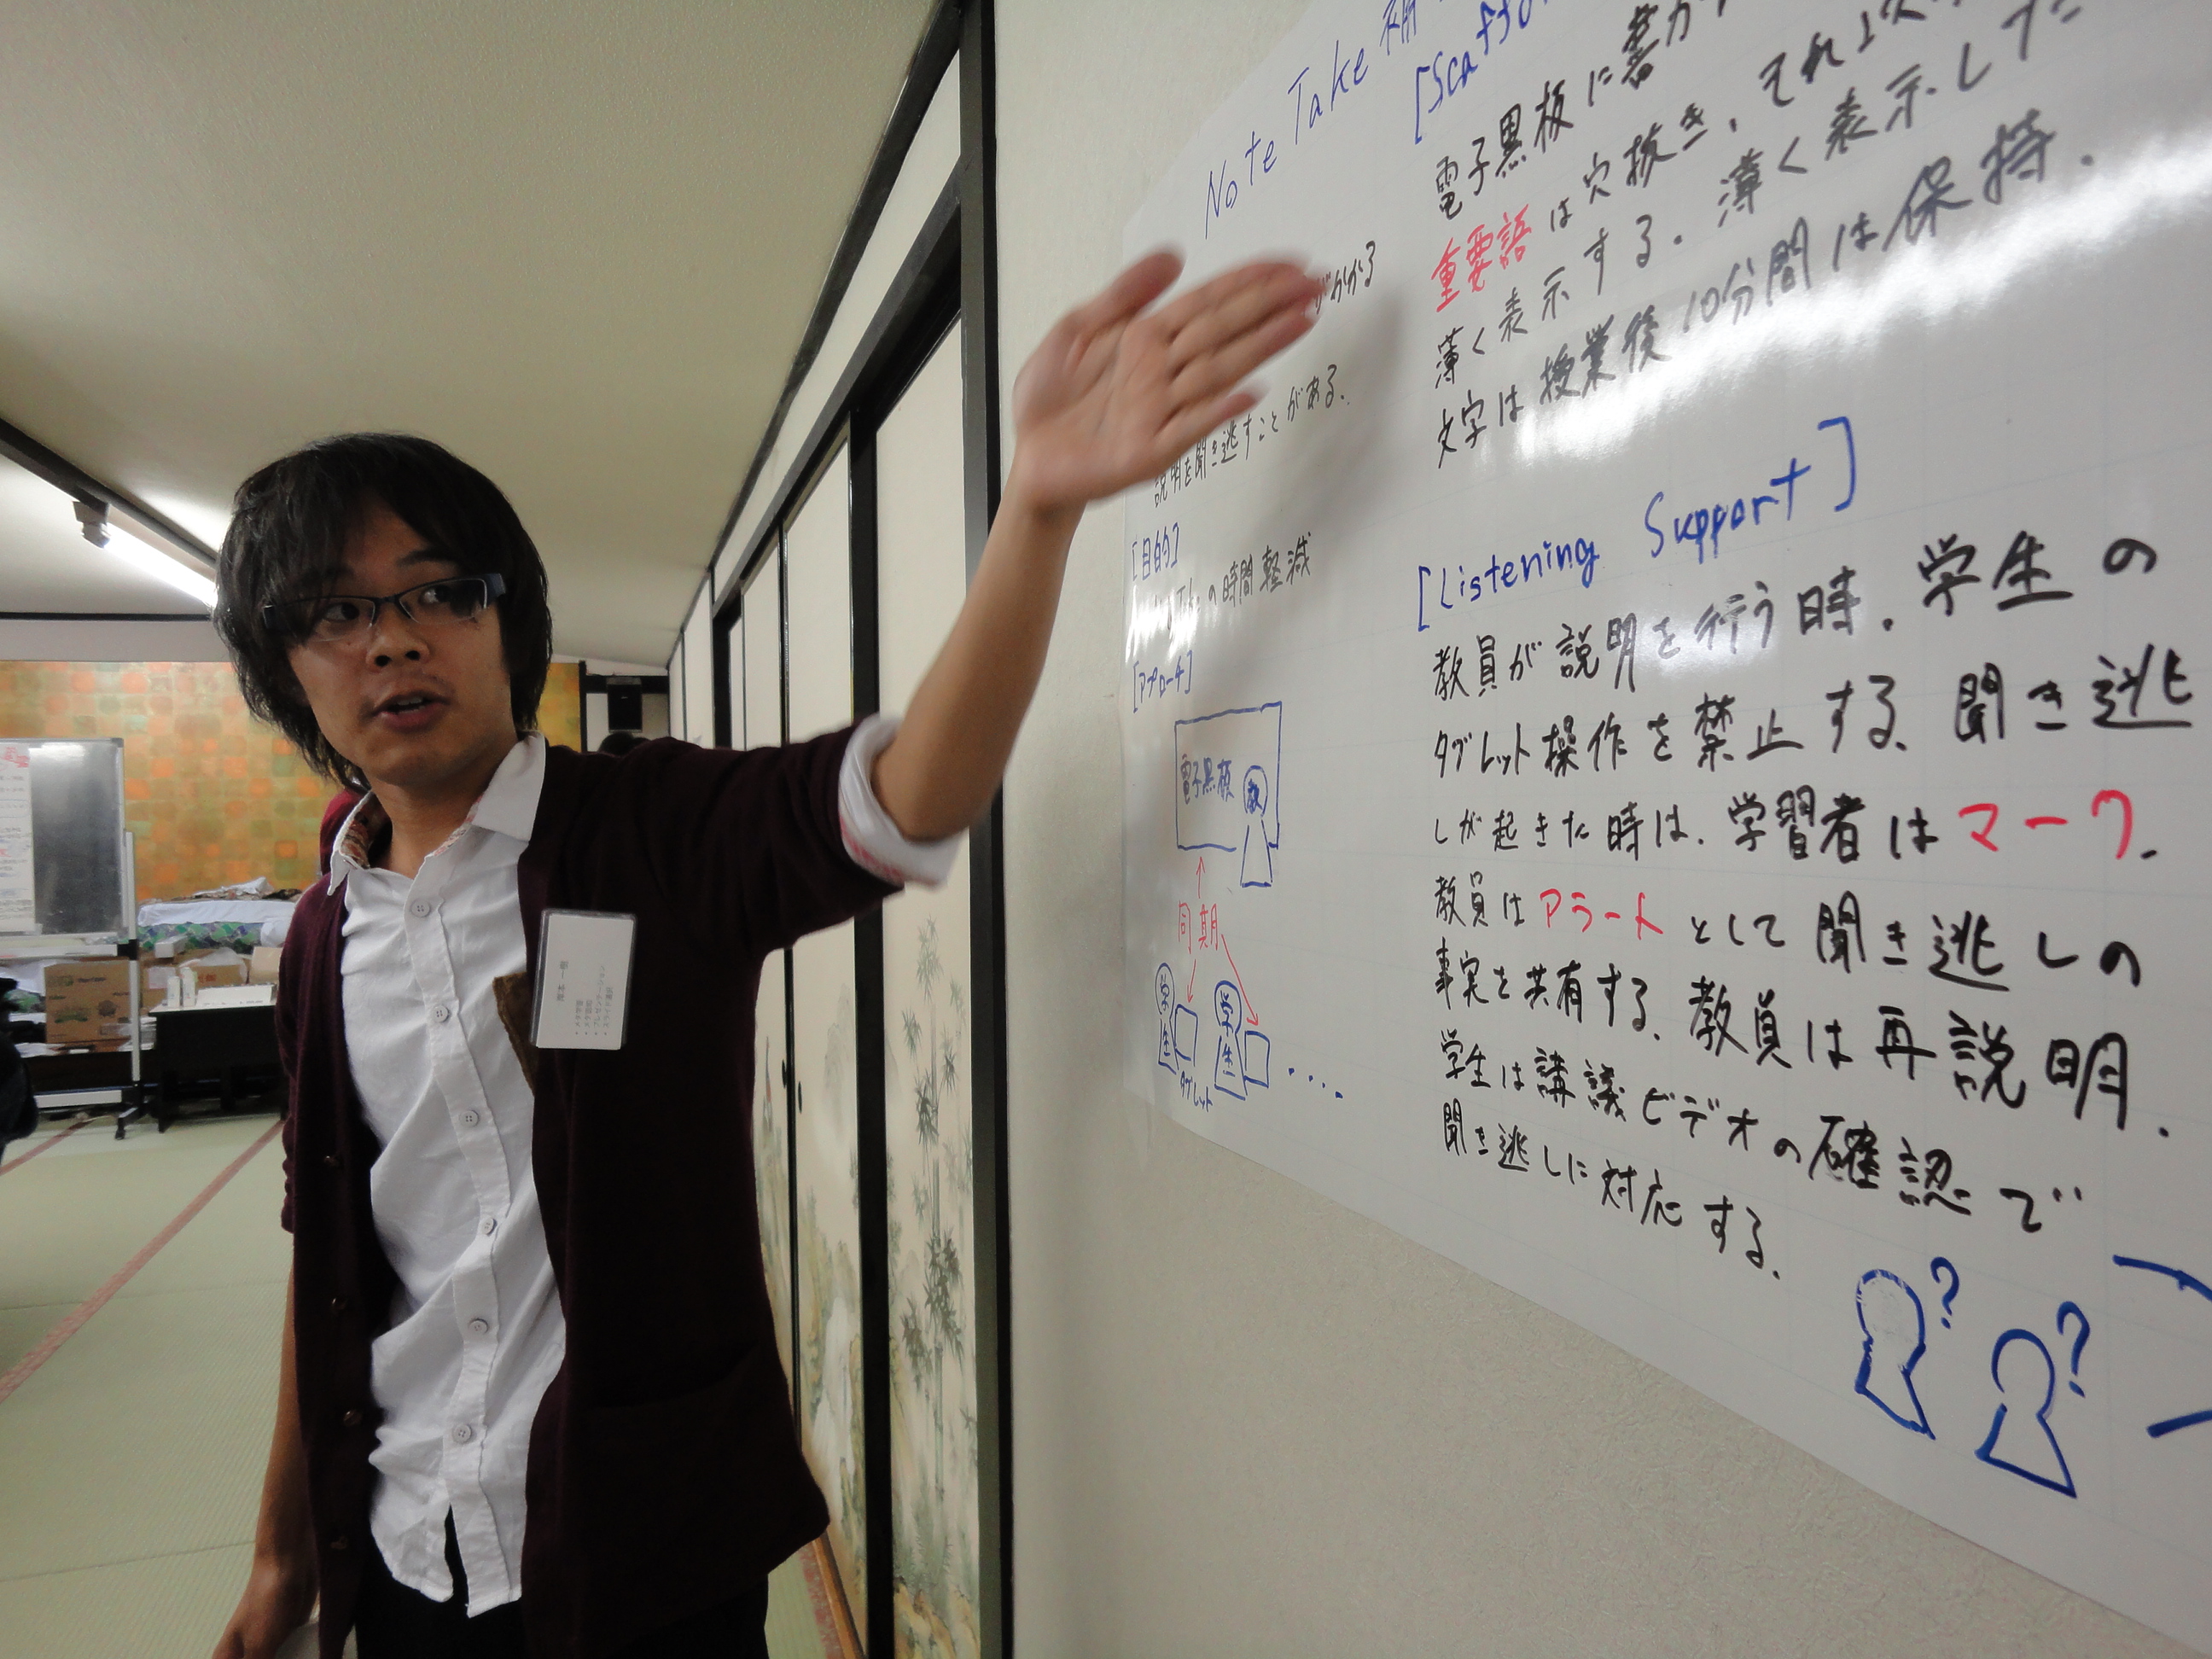 Note Take
がかかる
説明を聞き逃すことがある.
[目的]
の時間軽減
[アプローチ]
電子黒板
教
同期
学生
学生
タブレット
....
[Scaffo
電子黒板に書か
重要語は穴抜き,それ以
薄く表示する.薄く表示した
文字は授業後10分間は保持.
[Listening Support]
教員が説明を行う時.学生の
タブレット操作を禁止する.聞き逃
しが起きた時は.学習者はマーク.
教員はアラートとして聞き逃しの
事実を共有する.教員は再説明.
学生は講議ビデオの確認で
聞き逃しに対応する.
?
?